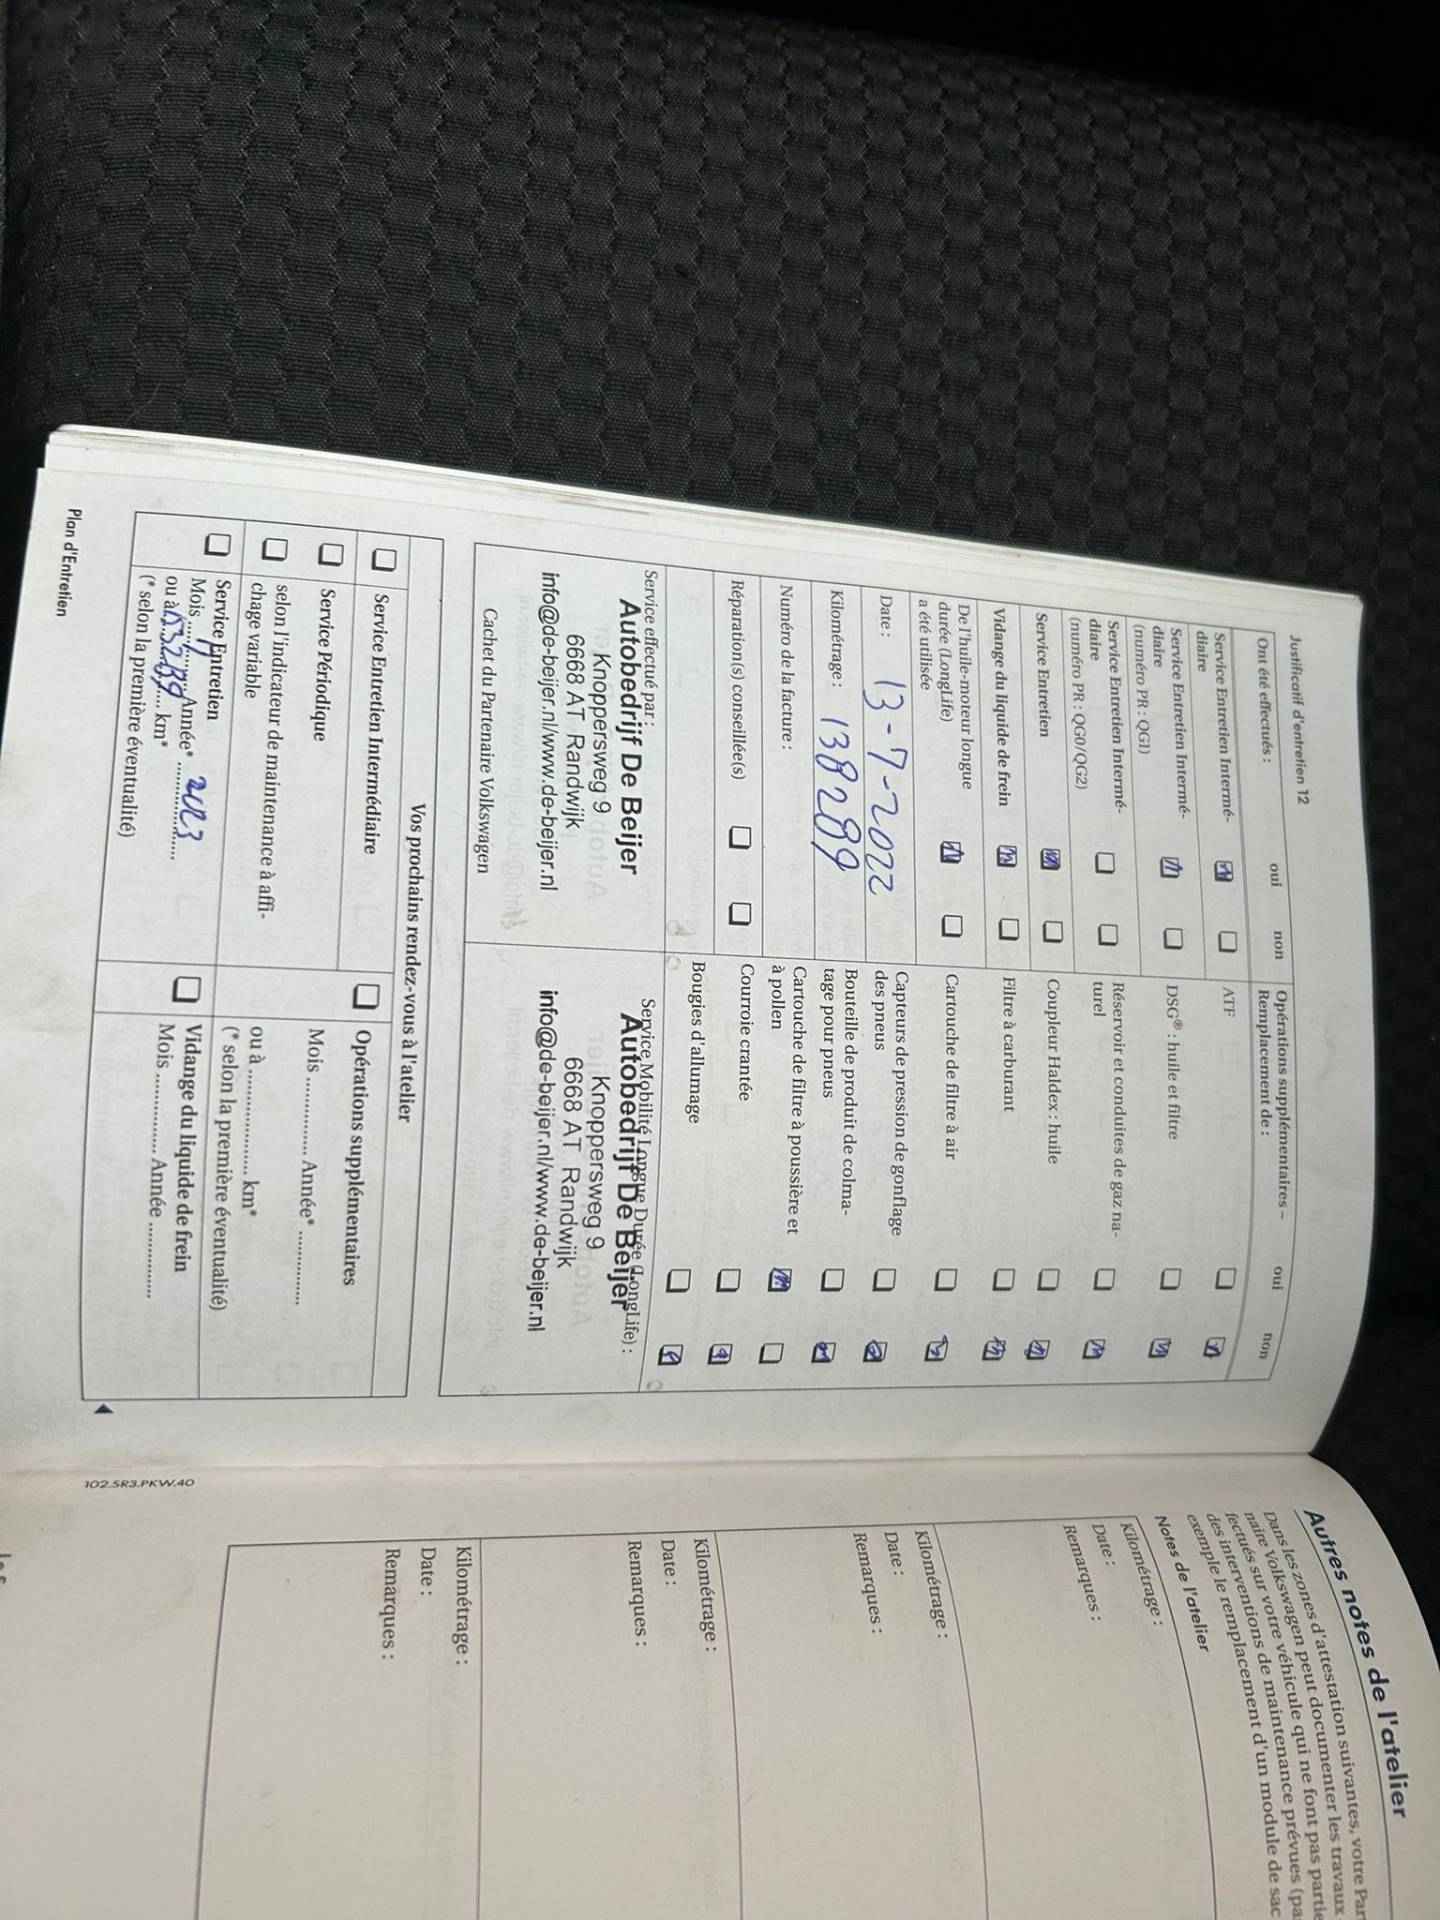 Justificatif d'entretien 12
Ont été effectués :
oui
non
Service Entretien Intermé-
diaire
Service Entretien Intermé-
diaire
(numéro PR : QG1)
Service Entretien Intermé-
diaire
(numéro PR : QG0/QG2)
Service Entretien
Vidange du liquide de frein
De l'huile-moteur longue
durée (LongLife)
a été utilisée
Date : 13-7-2022
Kilométrage : 138289
Numéro de la facture :
Réparation(s) conseillée(s)
Opérations supplémentaires –
Remplacement de :
oui
non
ATF
DSG® : huile et filtre
Réservoir et conduites de gaz na-
turel
Coupleur Haldex : huile
Filtre à carburant
Cartouche de filtre à air
Capteurs de pression de gonflage
des pneus
Bouteille de produit de colma-
tage pour pneus
Cartouche de filtre à poussière et
à pollen
Courroie crantée
Bougies d'allumage
Service effectué par :
Autobedrijf De Beijer
Knoppersweg 9
6668 AT Randwijk
info@de-beijer.nl/www.de-beijer.nl
Cachet du Partenaire Volkswagen
Service Mobilité Longue Durée (LongLife) :
Autobedrijf De Beijer
Knoppersweg 9
6668 AT Randwijk
info@de-beijer.nl/www.de-beijer.nl
Vos prochains rendez-vous à l'atelier
Service Entretien Intermédiaire
Service Périodique
selon l'indicateur de maintenance à affi-
chage variable
Service Entretien
Mois ............... Année* 2023
ou à 153289 km*
(* selon la première éventualité)
Opérations supplémentaires
Mois ............... Année* ...............
ou à ..................... km*
(* selon la première éventualité)
Vidange du liquide de frein
Mois ............... Année ...............
Plan d'Entretien
102.5R3.PKW.40
Autres notes de l'atelier
Dans les zones d'attestation suivantes, votre Par
naire Volkswagen peut documenter les travaux
fectués sur votre véhicule qui ne font pas partie
des interventions de maintenance prévues (pa
exemple le remplacement d'un module de sac
Notes de l'atelier
Kilométrage :
Date :
Remarques :
Kilométrage :
Date :
Remarques :
Kilométrage :
Date :
Remarques :
Kilométrage :
Date :
Remarques :